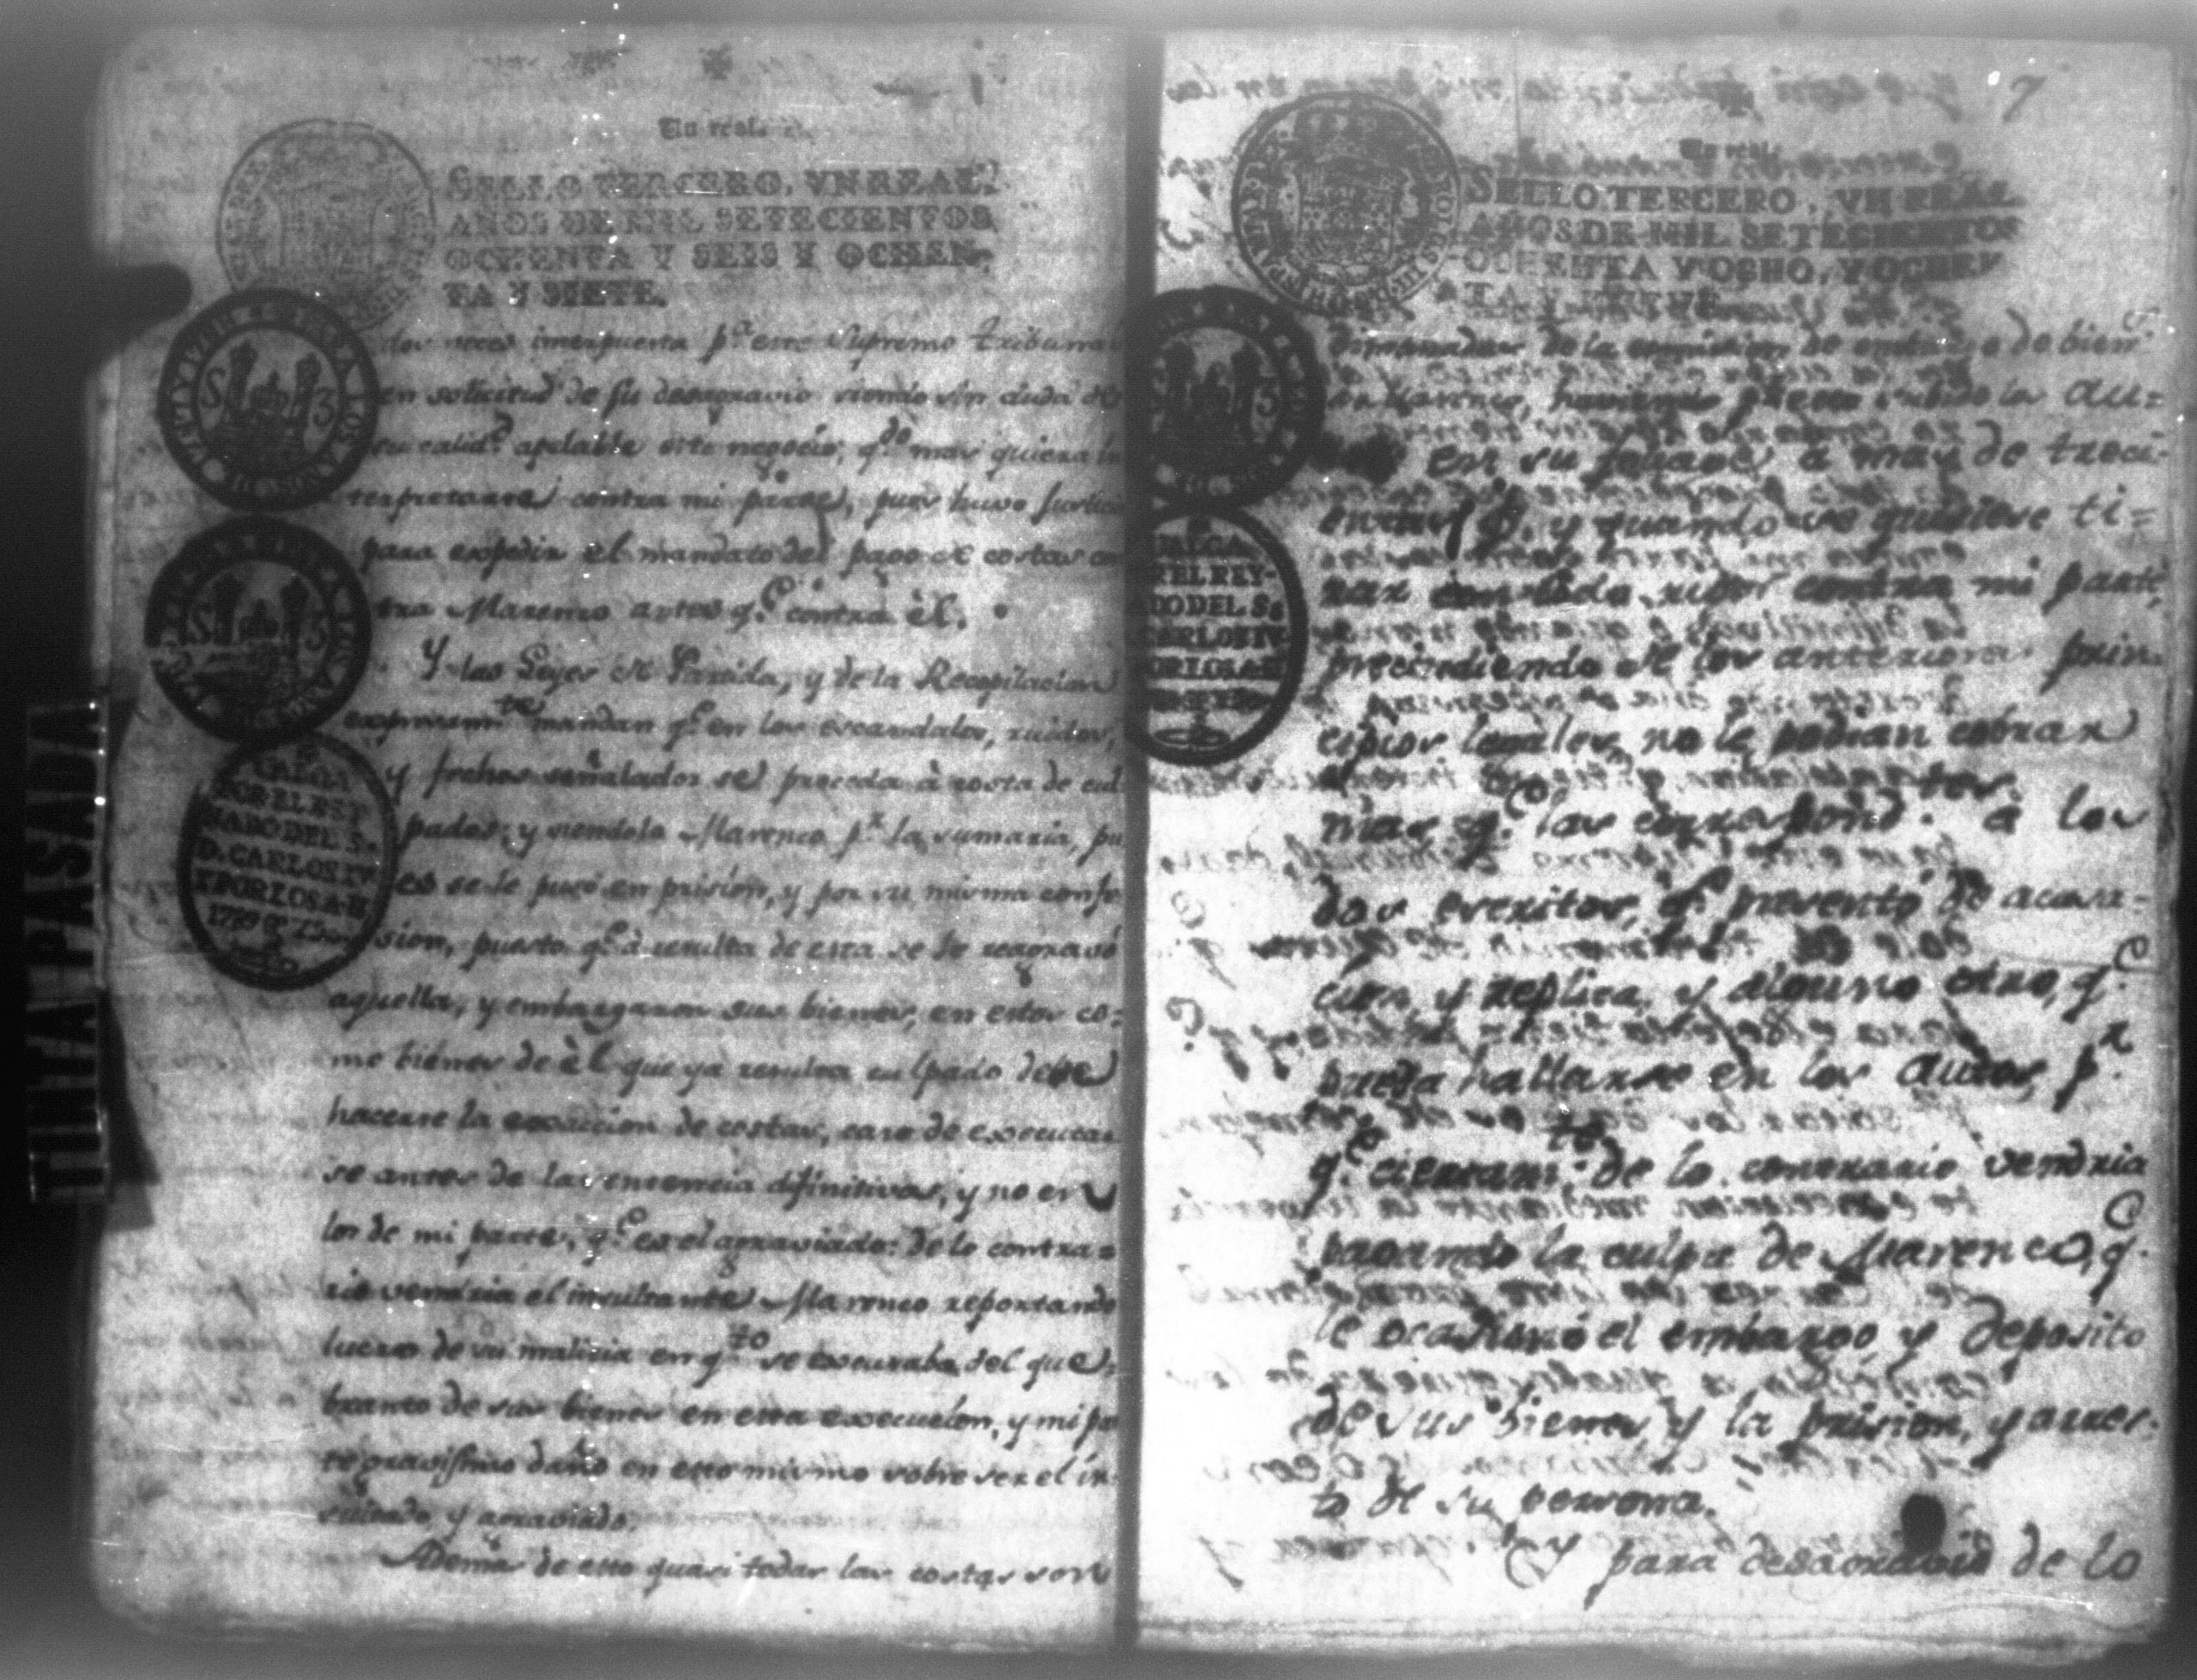 Un real.
SELLO TERCERO, VN REAL,
AÑOS DE MIL SETECIENTOS
OCHENTA Y SEIS Y OCHEN-
TA Y SIETE.
dos veces interpuesta pª este Supremo tribunal
en solicitud de su desagravio siendo sin duda de
su calid.d apelable este negocio, q.do mas quiera in
terpretarse contra mi parte, pues huvo
para expedir el mandato del pago de costas con
tra Marenco autos q.e contra èl.
Y las Leyes de Partida, y de la Recopilacion
expresam.te mandan q.e en los escandalos, ruidos,
y fechos señalados se proceda à costa de cul
pados; y siendolo Marenco p.r la sumaria, pu
es se le puso en prision, y por su misma confe
sion, puesto q.e à resulta de esta se le reagravó
aquella, y embargaron sus bienes, en estos co=
mo bienes de èl que ya resulta culpado debe
hacerse la exaccion de costas, caso de executar
se antes de la sentencia difinitiva, y no en
los de mi parte, q.e es el agraviado: de lo contra=
rio vendria el insultante Marenco reportando
lucro de su malicia en q.to se escusaba del que=
branto de sus bienes en esta execucion, y mi par
te gravissimo daño en esto mismo sobre ser el in
sultado y agraviado.
Ademàs de esto quasi todas las costas son
VALGA
POR EL REY
NADO DEL S.
D. CARLOS IV
Y POR LOS A. D
1789
7
Un real.
SELLO TERCERO, VN REAL
AÑOS DE MIL SETECIENTOS
OCHENTA Y OCHO, Y OCHEN
TA Y NUEVE
de la de embargo de bien.s
de Marenco, subido los au=
tos en su a mas de treci=
entas f.s y quando se quisiese ti=
rar con todo rigor contra mi parte,
precindiendo de los anteriores prin=
cipios legales, no le podian cobrar
mas, q.e las correspond.tes à los
dos escritos, q.e presentó de acusa=
cion y replica, y alguno otro, q.e
pueda hallarse en los autos, p.r
q.e ciertam.te de lo contrario vendria
pagando la culpa de Marenco, q.e
le ocasionó el embargo, y deposito
de sus bienes y la prision, y arres=
to de su persona.
Y para desagravio de lo
VALGA
POR EL REY-
NADO DEL S.
CARLOS IV